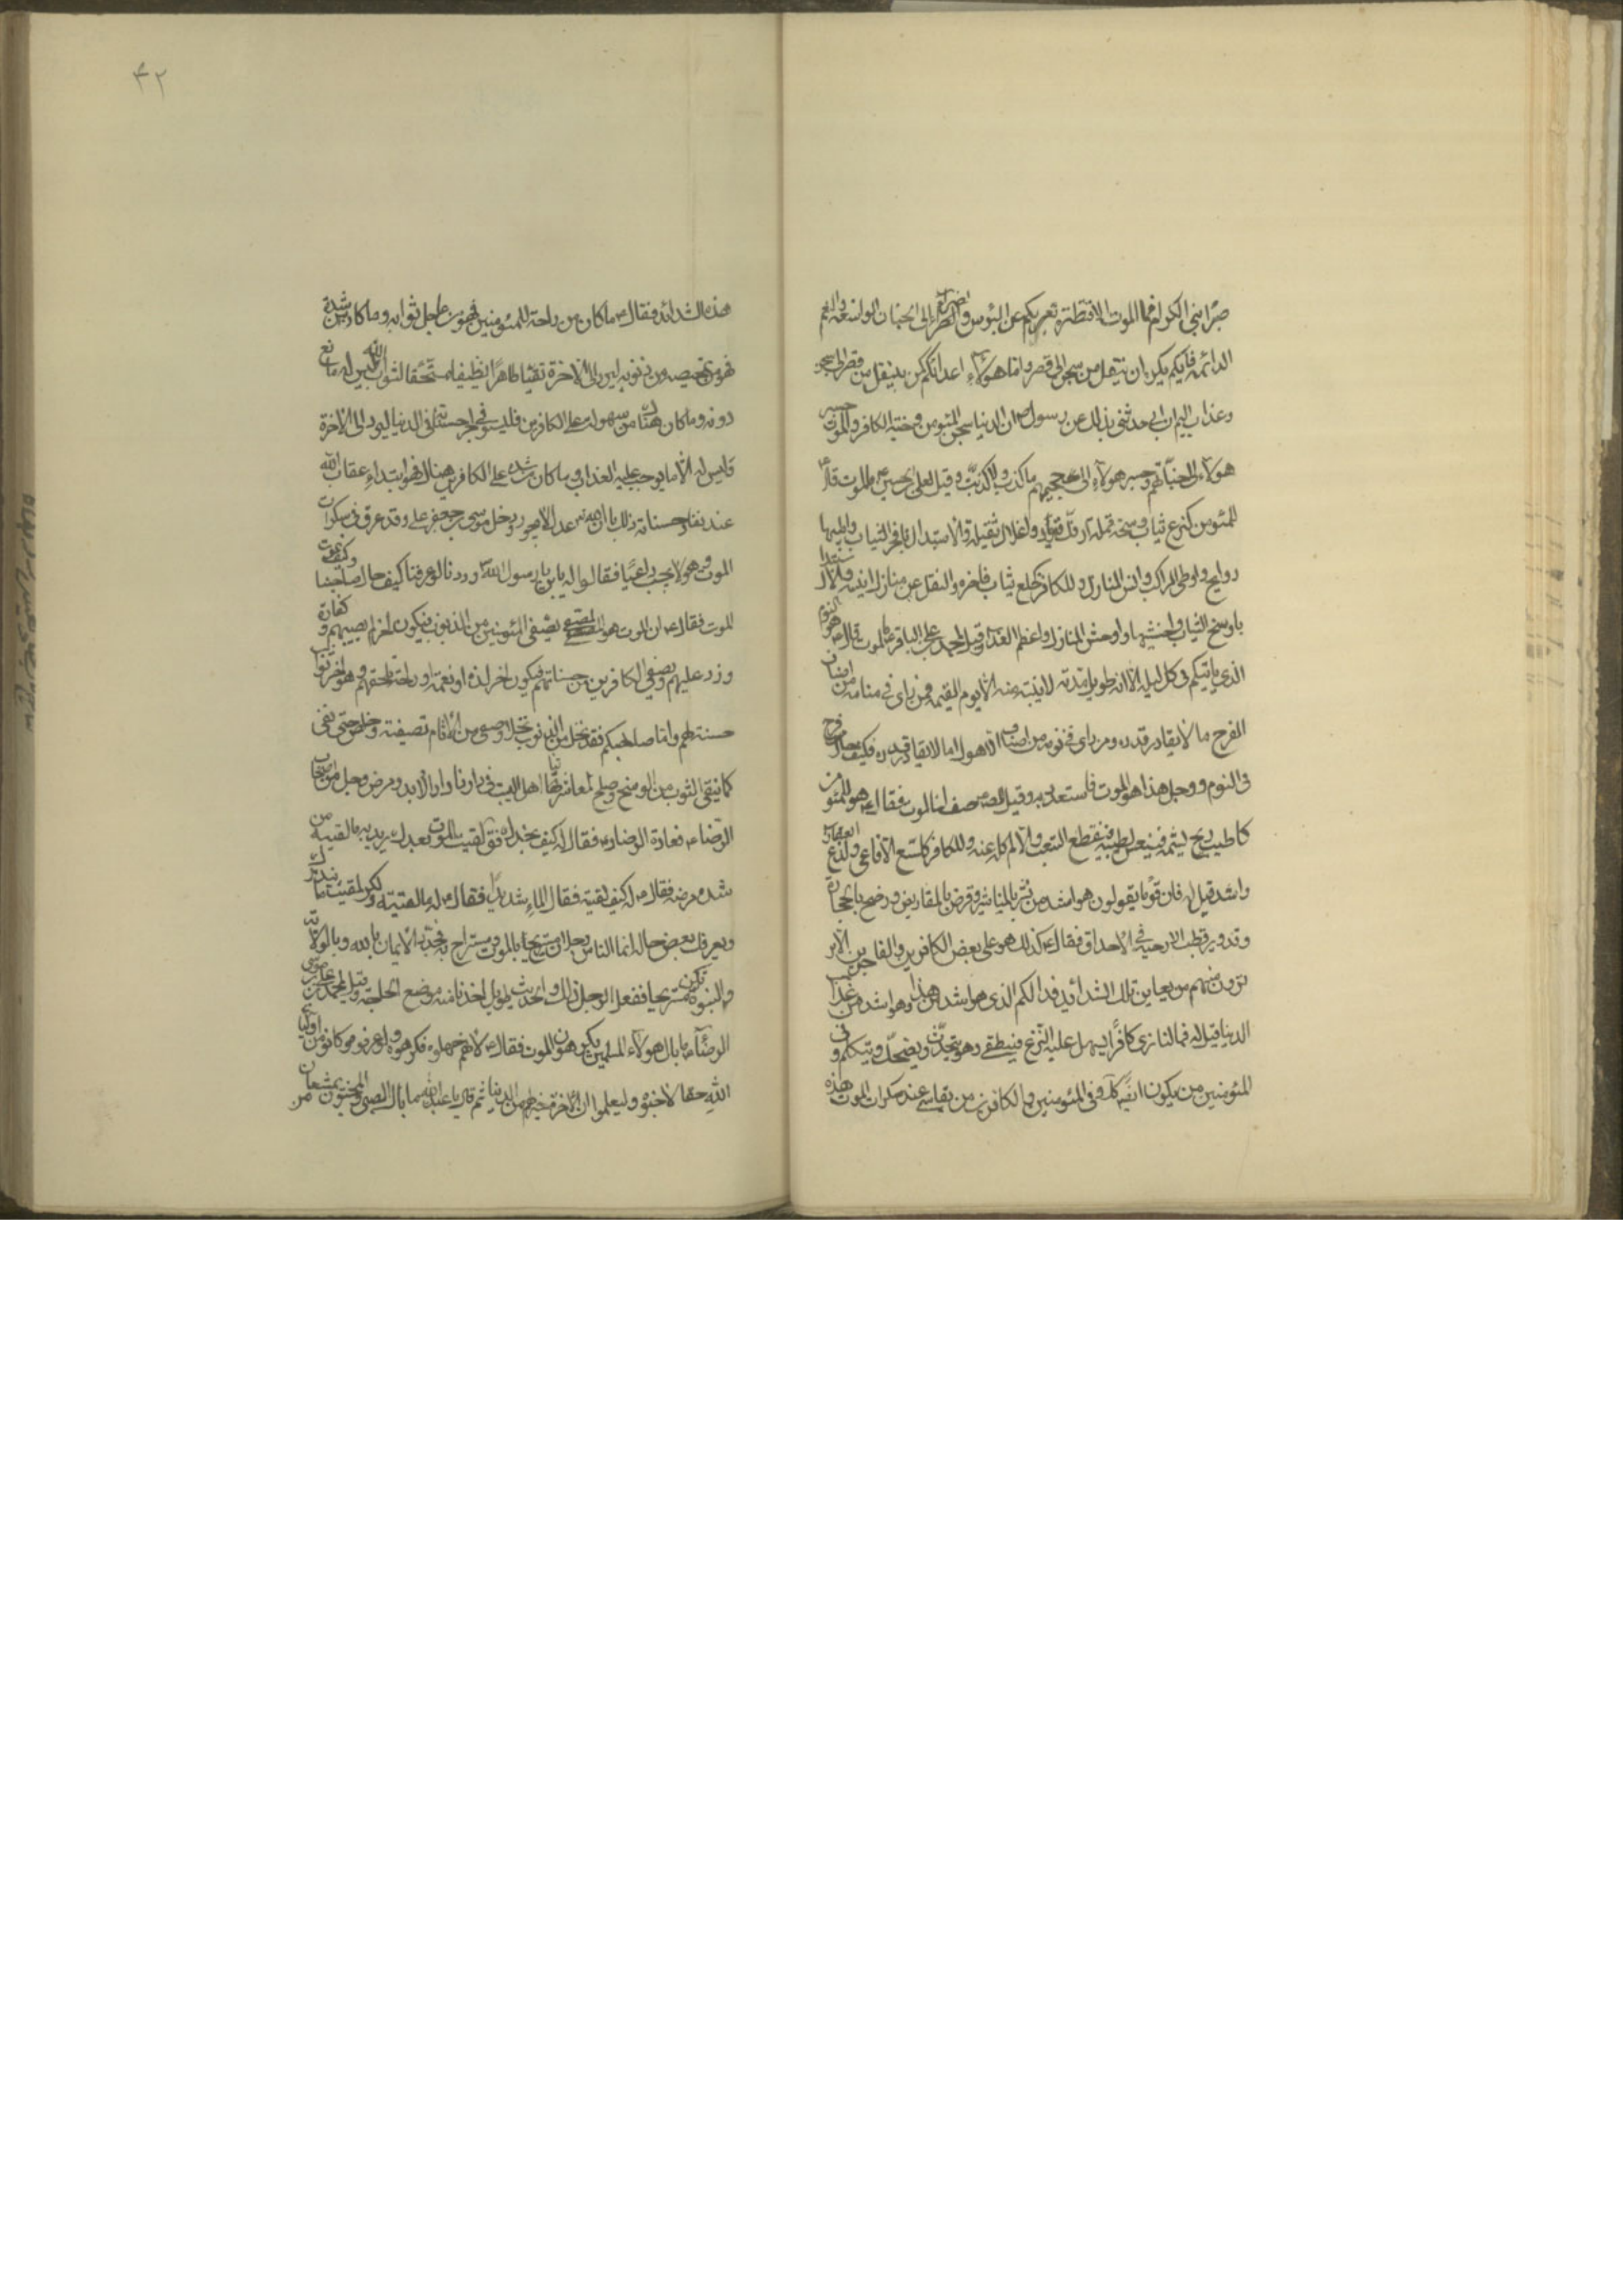 صبرا بنی الکرام فما الموت الا قنطرة تعبر بکم عن البؤس والضراء الی الجنان الواسعه والنعم
الدائمه فایکم یکره ان ینتقل من سجن الی قصر واما هولاء اعدائکم کمن ینتقل من قصر الی سجن
وعذاب الیم ان ابی حدثنی بذلک عن رسول ان الدنیا سجن المؤمن وجنة الکافر والموت جسر
هولاء الی جنانهم وجسر هولاء الی جحیمهم ما کذب ولا کذبت وقیل لعلی بن الحسین ما الموت قال
للمؤمن کنزع ثیاب وسخة قملة او فک قیود واغلال ثقیلة والاستبدال بافخر الثیاب واطیبها
روایح واوطی المراکب وانس المنازل وللکافر کخلع ثیاب فاخره والنقل عن منازل انیسه والاستبدال
باوسخ الثیاب واخشنها واوحش المنازل واعظم العذاب وقیل لمحمد بن علی الباقر ما الموت قال هو النوم
الذی یاتیکم فی کل لیلة الا انه طویل مدته لا ینتبه منه الا یوم القیمه فمن رای فی منامه من اصناف
الفرح ما لا یقادر قدره ومن رای فی نومه من اصناف الاهوال ما لا یقادر قدره فکیف حال فرح
فی النوم ووجل هذا هو الموت فاستعدوا له وقیل للصادق صف لنا الموت فقال هو للمؤمن
کاطیب ریح یشمه فینعس لطیبه فینقطع التعب والالم کله عنه وللکافر کلسع الافاعی ولدغ العقارب
واشد قیل له فان قوما یقولون هو اشد من نشر بالمناشیر وقرض بالمقاریض ورضخ بالحجارة
وتدویر قطب الارحیة فی الاحداق فقال کذلک هو علی بعض الکافرین والفاجرین الا
ترون منهم من یعاین تلک الشدائد فذالکم الذی هو اشد من هذا وهو اشد من عذاب
الدنیا قیل له فما لنا نری کافرا یسهل علیه النزع فینطفی وهو یتحدث ویضحک ویتکلم وفی
المؤمنین من یکون ایضا کذلک وفی المؤمنین والکافرین من یقاسی عند سکرات الموت هذه
۴۲
هذه الشدائد فقال ما کان من راحة للمؤمنین فهو من عاجل ثوابه وما کان من شدة
فهو تمحیصه من ذنوبه لیرد الی الاخرة نقیا طاهرا نظیفا مستحقا لثواب الله لیس له مانع
دونه وما کان هناک من سهولة علی الکافرین فلیستوفی اجر حسناته فی الدنیا لیرد الی الاخرة
ولیس له الا ما یوجب علیه العذاب وما کان من شدة علی الکافرین هناک فهو ابتداء عقاب الله
عند نفاد حسناته ذلک بان الله عدل لا یجور ودخل موسی بن جعفر علی رجل قد غرق فی سکرات
الموت وهو لا یجیب داعیا فقالوا له یا بن رسول الله وددنا لو عرفنا کیف حال صاحبنا وکیف یموت
الموت فقال ان الموت هو المصفی یصفی المؤمنین من الذنوب فیکون اخر الم یصیبهم وکفارة
وزر علیهم ویصفی الکافرین من حسناتهم فیکون اخر لذة او نعمة او راحة تلحقهم وهو اخر ثواب
حسنة لهم واما صاحبکم فقد نخل من الذنوب نخلا وصفی من الاثام تصفیة وخلص حتی نقی
کما ینقی الثوب من الوسخ وصلح لمعاشرتنا اهل البیت فی دارنا دار الابد ومرض رجل من اصحاب
الرضا فعاده الرضا فقال له کیف تجدک فقال لقیت الموت بعدک یرید به ما لقیه من
شدة مرضه فقال له کیف لقیته فقال الما شدیدا فقال له ما لقیته ولکن لقیت ما ینذرک
ویعرفک بعض حاله انما الناس رجلان مستریح بالموت ومستراح به فجدد الایمان بالله وبالولایة
والنبوة تکن مستریحا ففعل الرجل ذلک والحدیث طویل اخذنا منه موضع الحاجة وقیل لمحمد بن علی بن موسی
الرضا ما بال هولاء المسلمین یکرهون الموت فقال لانهم جهلوه فکرهوه ولو عرفوه وکانوا من اولیاء
الله حقا لاحبوه ولیعلموا ان الاخرة خیر لهم من الدنیا ثم قال یا عبدالله ما بال الصبی والمجنون یمتنعان من